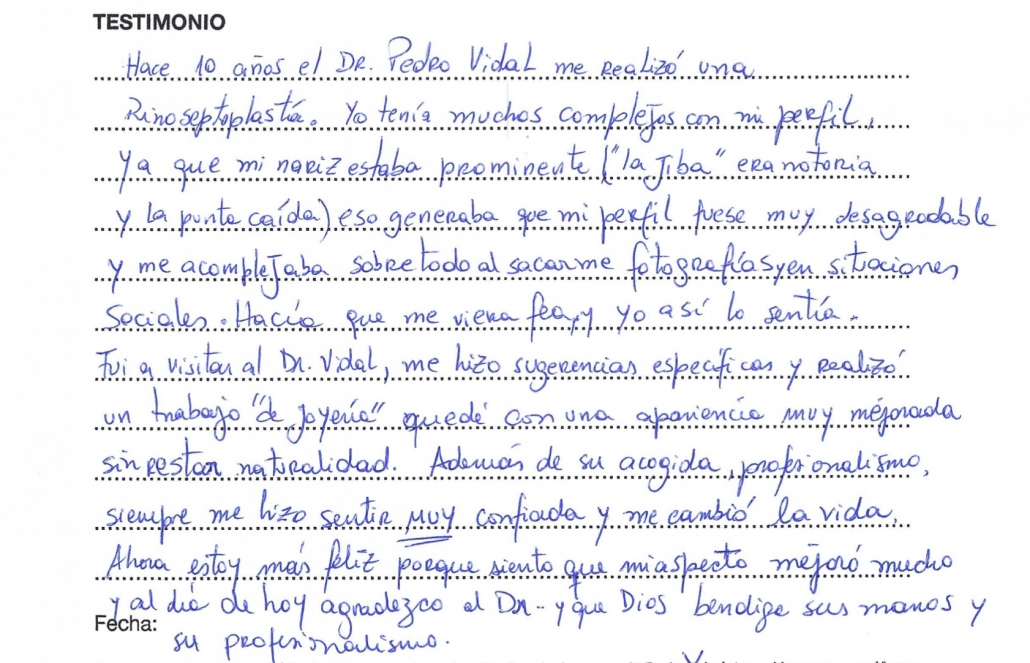 TESTIMONIO
Hace 10 años el Dr. Pedro Vidal me realizó una
Rinoseptoplastía. Yo tenía muchos complejos con mi perfil,
Ya que mi nariz estaba prominente ("la Jiba" era notoria
y la punta caída) eso generaba que mi perfil fuese muy desagradable
y me acomplejaba sobre todo al sacarme fotografías y en situaciones
Sociales. Hacía que me viera fea, y yo así lo sentía.
Fui a visitar al Dr. Vidal, me hizo sugerencias específicas y realizó
un trabajo "de Joyería" quedé con una apariencia muy mejorada
sin restar naturalidad. Además de su acogida, profesionalismo,
siempre me hizo sentir MUY confiada y me cambió la vida.
Ahora estoy más feliz porque siento que mi aspecto mejoró mucho
y al día de hoy agradezco al Dr. y que Dios bendige sus manos y
Fecha:
su profesionalismo.